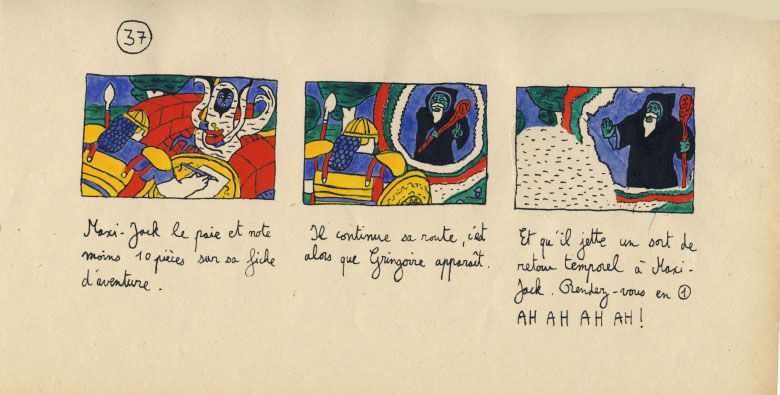 37
Maxi-Jack le paie et note
moins 10 pièces sur sa fiche
d'aventure.
Il continue sa route, c'est
alors que Gringoire apparaît.
Et qu'il jette un sort de
retour temporel à Maxi-
Jack. Rendez-vous en 1
AH AH AH AH !